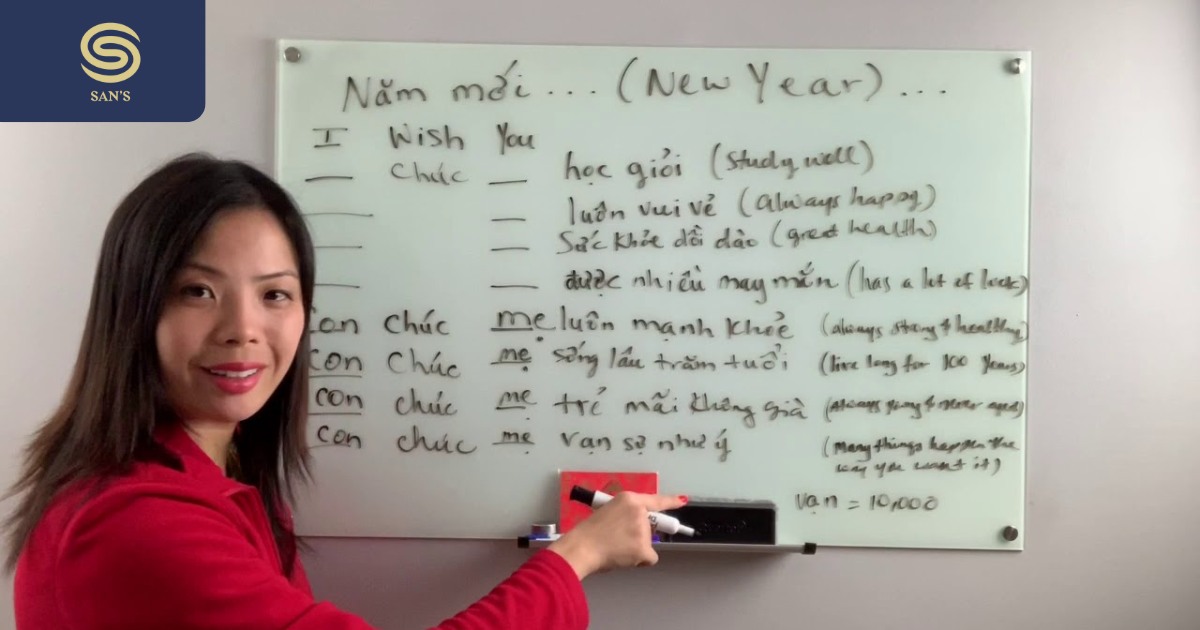 SAN'S
Năm mới ... (New Year) ...
I Wish You
Chúc học giỏi (Study well)
luôn vui vẻ (Always happy)
Sức khỏe dồi dào (great health)
được nhiều may mắn (has a lot of luck)
con chúc mẹ luôn mạnh khoẻ (always strong & healthy)
con chúc mẹ sống lâu trăm tuổi (live long for 100 years)
con chúc mẹ trẻ mãi không già (Always young & never aged)
con chúc mẹ vạn sự như ý (Many things happen the
way you want it)
vạn = 10,000